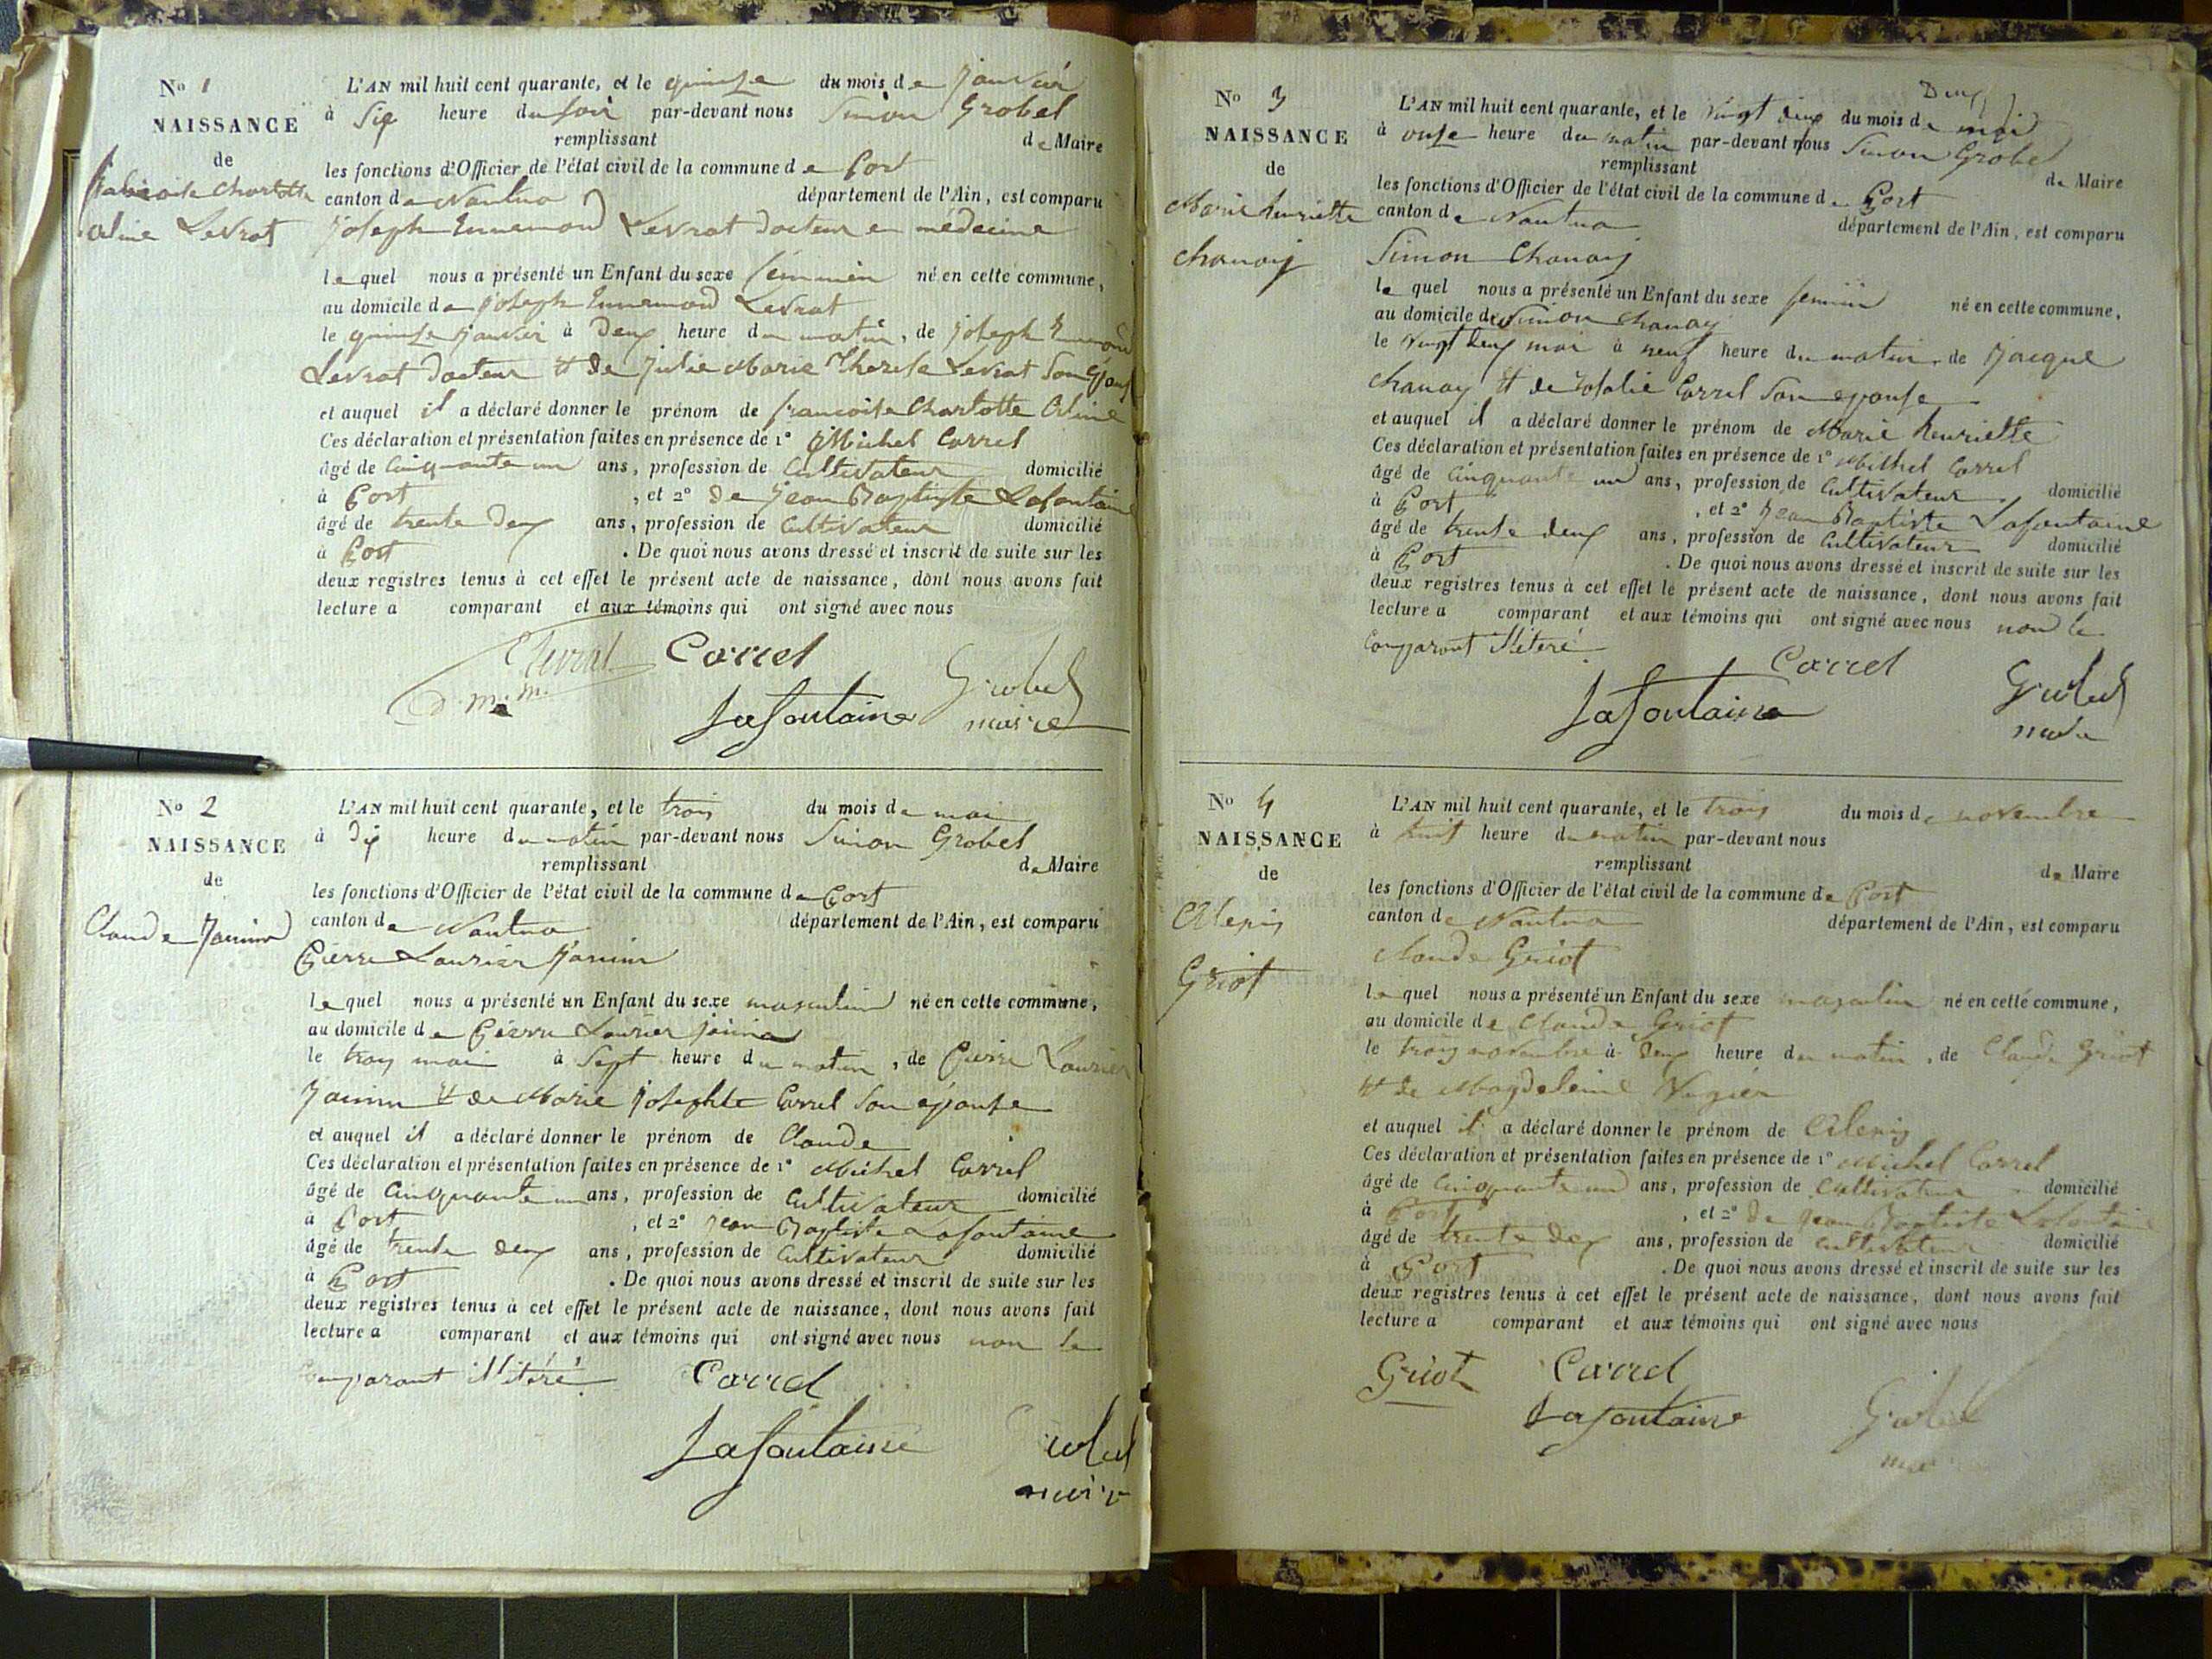 No 1
NAISSANCE
de
francoise Charlotte
Celine Levrat
L'AN mil huit cent quarante, et le quinze du mois de janvier
à Six heure du soir par-devant nous Simon Grobel
remplissant de Maire
les fonctions d'Officier de l'état civil de la commune de Port
canton de Nantua département de l'Ain, est comparu
Joseph Ennemond Levrat docteur en médecine
lequel nous a présenté un Enfant du sexe féminin né en cette commune,
au domicile de Joseph Ennemond Levrat
le quinze janvier à Deux heure du matin, de Joseph Ennemond
Levrat docteur et de Julie Marie Therese Levrat Son Epouse
et auquel il a déclaré donner le prénom de francoise Charlotte Celine
Ces déclaration et présentation faites en présence de 1° Michel Carrel
âgé de Cinquante un ans, profession de Cultivateur domicilié
à Port , et 2° de Jean Baptiste Lafontaine
âgé de trente deux ans, profession de Cultivateur domicilié
à Port . De quoi nous avons dressé et inscrit de suite sur les
deux registres tenus à cet effet le présent acte de naissance, dont nous avons fait
lecture a comparant et aux témoins qui ont signé avec nous
Levrat Carrel
d. m. m.
Lafontaine Grobel
maire
No 2
NAISSANCE
de
Claude Janin
L'AN mil huit cent quarante, et le trois du mois de mai
à dix heure du matin par-devant nous Simon Grobel
remplissant de Maire
les fonctions d'Officier de l'état civil de la commune de Port
canton de Nantua département de l'Ain, est comparu
Pierre Laurier
lequel nous a présenté un Enfant du sexe masculin né en cette commune,
au domicile de Pierre Laurier
le trois mai à Sept heure du matin, de Pierre Laurier
et de Marie Josephte Carrel Son épouse
et auquel il a déclaré donner le prénom de Claude
Ces déclaration et présentation faites en présence de 1° Michel Carrel
âgé de Cinquante un ans, profession de Cultivateur domicilié
à Port , et 2° Jean Baptiste Lafontaine
âgé de trente deux ans, profession de Cultivateur domicilié
à Port . De quoi nous avons dressé et inscrit de suite sur les
deux registres tenus à cet effet le présent acte de naissance, dont nous avons fait
lecture a comparant et aux témoins qui ont signé avec nous non le
comparant illitéré Carrel
Lafontaine Grobel
maire
No 3
NAISSANCE
de
Marie henriette
Chanay
Deux
L'AN mil huit cent quarante, et le vingt deux du mois de mai
à onze heure du matin par-devant nous Simon Grobel
remplissant de Maire
les fonctions d'Officier de l'état civil de la commune de Port
canton de Nantua département de l'Ain, est comparu
Simon Chanay
lequel nous a présenté un Enfant du sexe feminin né en cette commune,
au domicile de Simon Chanay
le vingt deux mai à neuf heure du matin, de Jacque
Chanay et de Rosalie Carrel Son epouse
et auquel il a déclaré donner le prénom de Marie henriette
Ces déclaration et présentation faites en présence de 1° Michel Carrel
âgé de Cinquante un ans, profession de Cultivateur domicilié
à Port , et 2° Jean Baptiste Lafontaine
âgé de trente deux ans, profession de Cultivateur domicilié
à Port . De quoi nous avons dressé et inscrit de suite sur les
deux registres tenus à cet effet le présent acte de naissance, dont nous avons fait
lecture a comparant et aux témoins qui ont signé avec nous non le
Comparant illitéré
Carrel
Lafontaine Grobel
maire
No 4
NAISSANCE
de
Alexis
Griot
L'AN mil huit cent quarante, et le trois du mois de novembre
à huit heure du matin par-devant nous
remplissant de Maire
les fonctions d'Officier de l'état civil de la commune de Port
canton de Nantua département de l'Ain, est comparu
Claude Griot
lequel nous a présenté un Enfant du sexe masculin né en cette commune,
au domicile de Claude Griot
le trois novembre à Deux heure du matin, de Claude Griot
et de Magdeleine
et auquel il a déclaré donner le prénom de Alexis
Ces déclaration et présentation faites en présence de 1° Michel Carrel
âgé de Cinquante un ans, profession de Cultivateur domicilié
à Port , et 2° de Jean Baptiste Lafontaine
âgé de trente deux ans, profession de Cultivateur domicilié
à Port . De quoi nous avons dressé et inscrit de suite sur les
deux registres tenus à cet effet le présent acte de naissance, dont nous avons fait
lecture a comparant et aux témoins qui ont signé avec nous
Griot Carrel
Lafontaine Grobel
maire